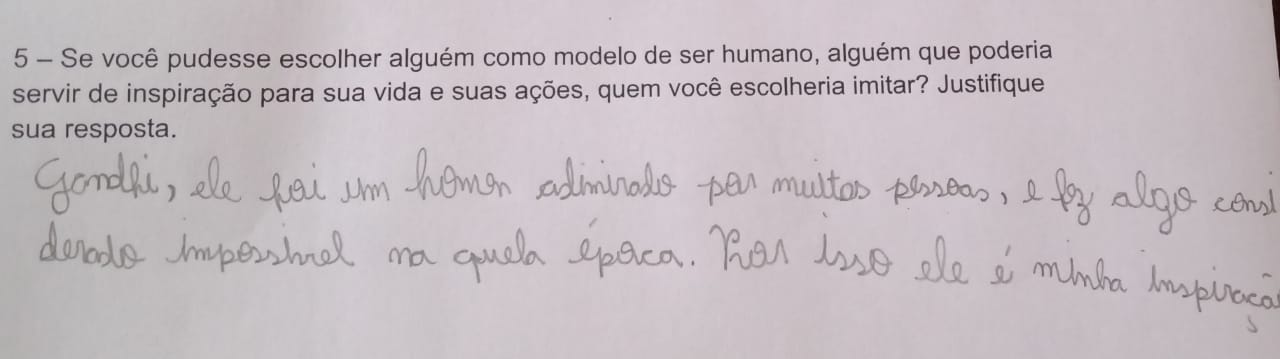 5 – Se você pudesse escolher alguém como modelo de ser humano, alguém que poderia
servir de inspiração para sua vida e suas ações, quem você escolheria imitar? Justifique
sua resposta.
Gandhi, ele foi um homen adimirado por muitas pessoas, e fez algo consi
derado impossivel na quela época. Por isso ele é minha inspiraçã